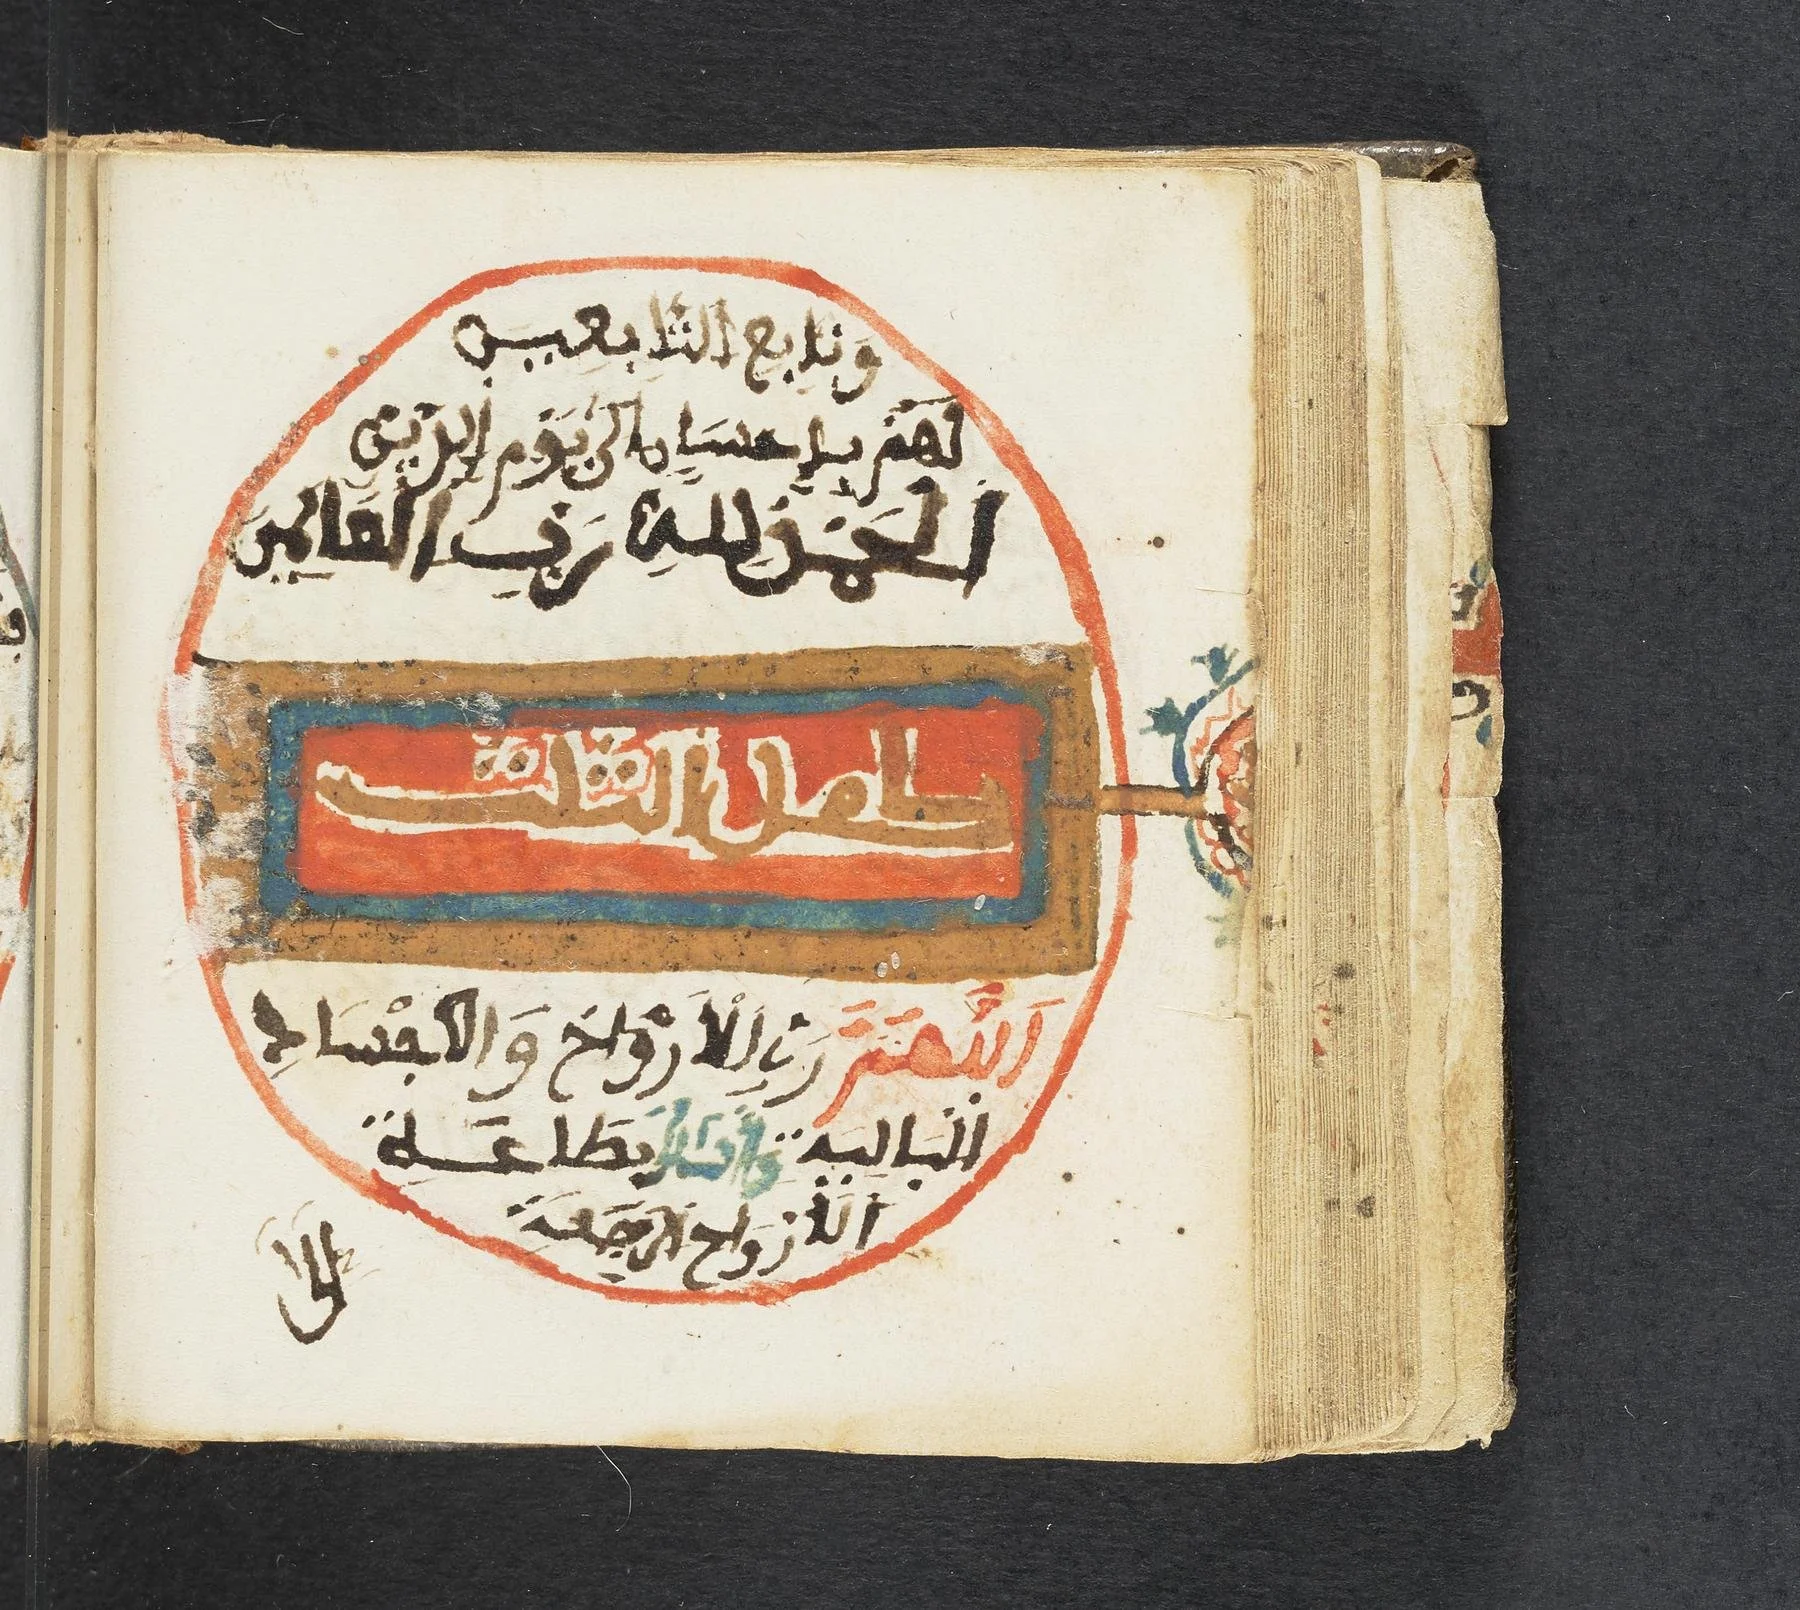 وَتابِع التّابِعين
لَهُمْ بِإِحسَانٍ الى يَوْمِ الدّينِ
الحَمْدُ لِلهِ رَبِّ العَالَمِين
كامل الثلث
اَللَّهُمَّ رَبَّ اِلْأَرْوَاحِ وَالأَجْسَادِ
البَالِيَةِ وَأَسْأَلُكَ بِطَاعَةِ
الأَرْوَاحِ الرَّاجِعَةِ
إلى